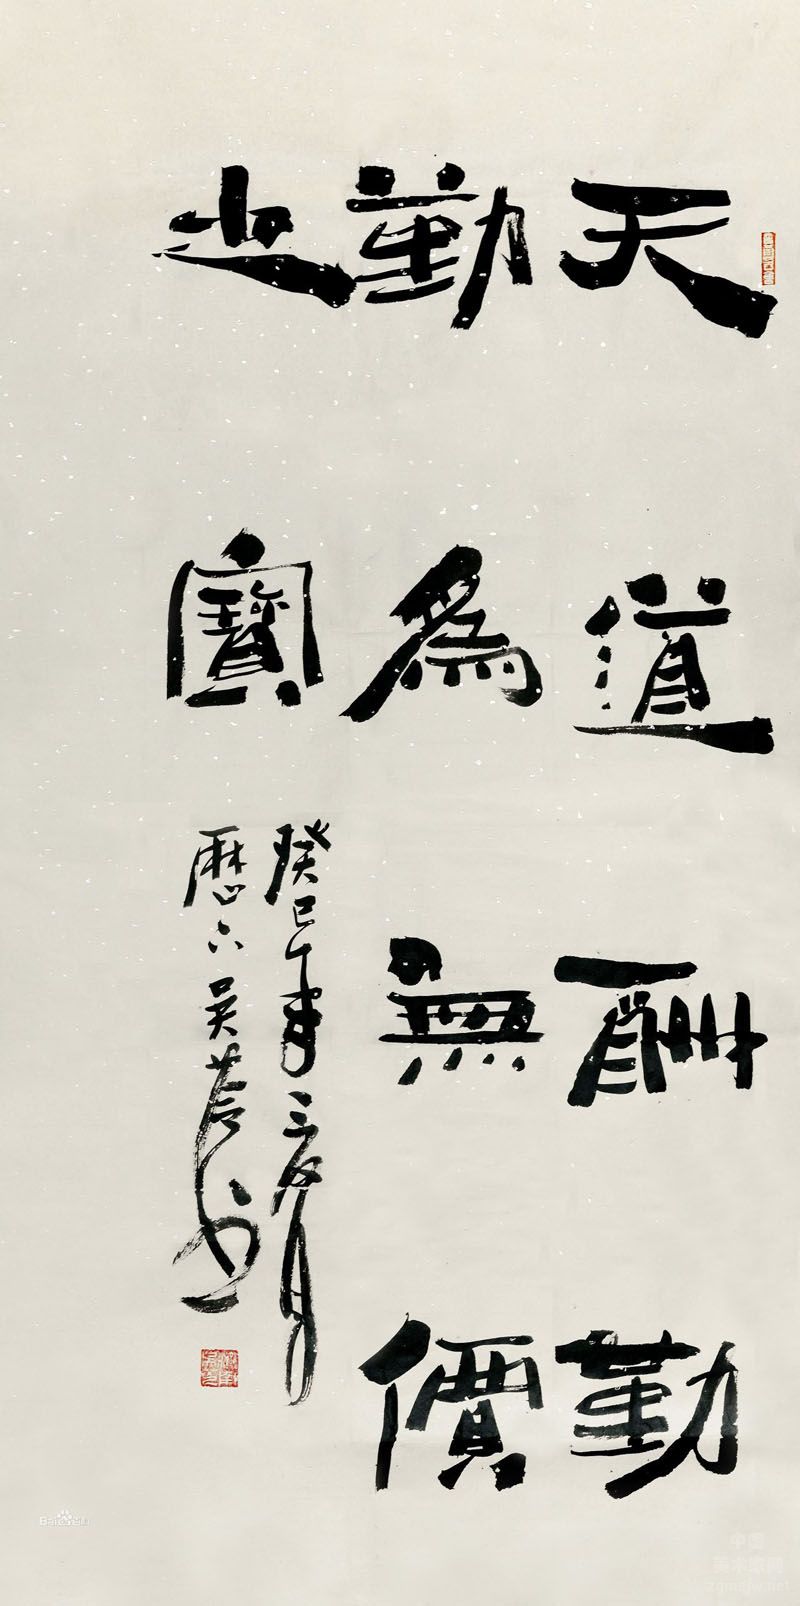 天道酬勤
勤為無價
之寶
癸巳年三月
歷下吴书
Baidu百科
中国
美术家网
zgmsjw.net